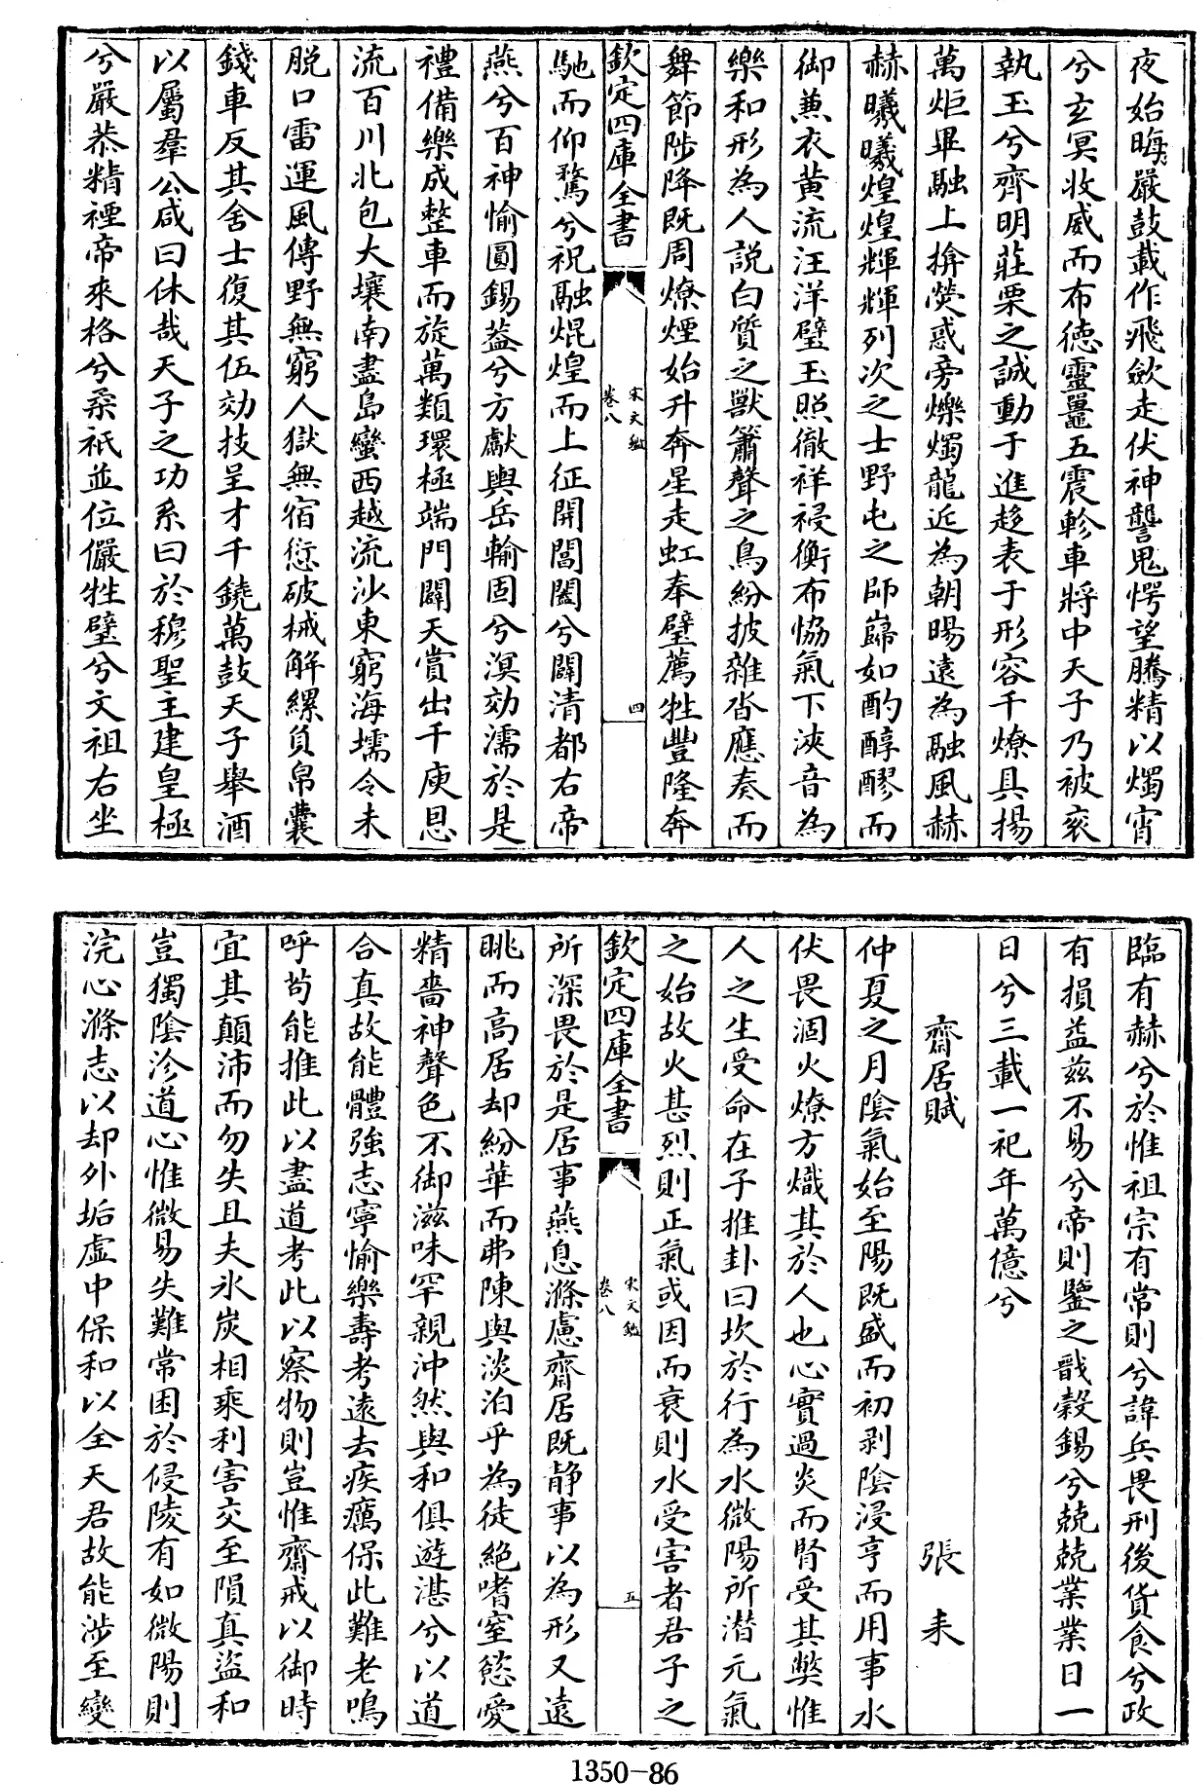 夜始晦嚴鼓載作飛歛走伏神讋鬼愕望騰精以燭宵
兮玄冥收威而布德靈鼉五震軫車將中天子乃被衮
執玉兮齊明莊栗之誠動于進趍表于形容千燎具揚
萬炬畢融上摛熒惑旁爍燭龍近為朝暘遠為融風赫
赫曦曦煌煌輝輝列次之士野屯之師歸如酌醇醪而
御蒹衣黃流汪洋璧玉照徹祥祲衡布協氣下浹音為
樂和形為人說白質之獸簫聲之鳥紛披雜沓應奏而
舞節陟降既周燎煙始升奔星走虹奉璧薦牲豐隆奔
欽定四庫全書
宋文鑑
卷八
四
馳而仰騖兮祝融焜煌而上征開閶闔兮闢清都右帝
燕兮百神愉圓錫葢兮方獻輿岳輸固兮溟効濡於是
禮備樂成整車而旋萬類環極端門闢天賞出千庾恩
流百川北包大壤南盡島蠻西越流沙東窮海壖令未
脱口雷運風傳野無窮人獄無宿愆破械解縲負帛囊
錢車反其舍士復其伍効技呈才千鐃萬鼓天子舉酒
以屬羣公咸曰休哉天子之功系曰於穆聖主建皇極
兮嚴恭精禋帝來格兮柔祇並位儼牲璧兮文祖右坐
臨有赫兮於惟祖宗有常則兮諱兵畏刑後貨食兮政
有損益茲不易兮帝則鑒之戩穀錫兮兢兢業業日一
日兮三載一祀年萬億兮
齋居賦 張耒
仲夏之月陰氣始至陽既盛而初剥陰浸亨而用事水
伏畏涸火燎方熾其於人也心實過炎而腎受其獘惟
人之生受命在子推卦曰坎於行為水微陽所潛元氣
之始故火甚烈則正氣或因而衰則水受害者君子之
欽定四庫全書
宋文鑑
卷八
五
所深畏於是居事燕息滌慮齋居既静事以為形又遠
眺而高居却紛華而弗陳與淡泊乎為徒絶嗜窒慾愛
精嗇神聲色不御滋味罕親沖然與和俱遊湛兮以道
合真故能體強志寧愉樂壽考遠去疾癘保此難老嗚
呼苟能推此以盡道考此以察物則豈惟齋戒以御時
宜其顛沛而勿失且夫氷炭相乘利害交至隕真盜和
豈獨陰沴道心惟微易失難常困於侵陵有如微陽則
浣心滌志以却外垢虛中保和以全天君故能涉至變
1350-86